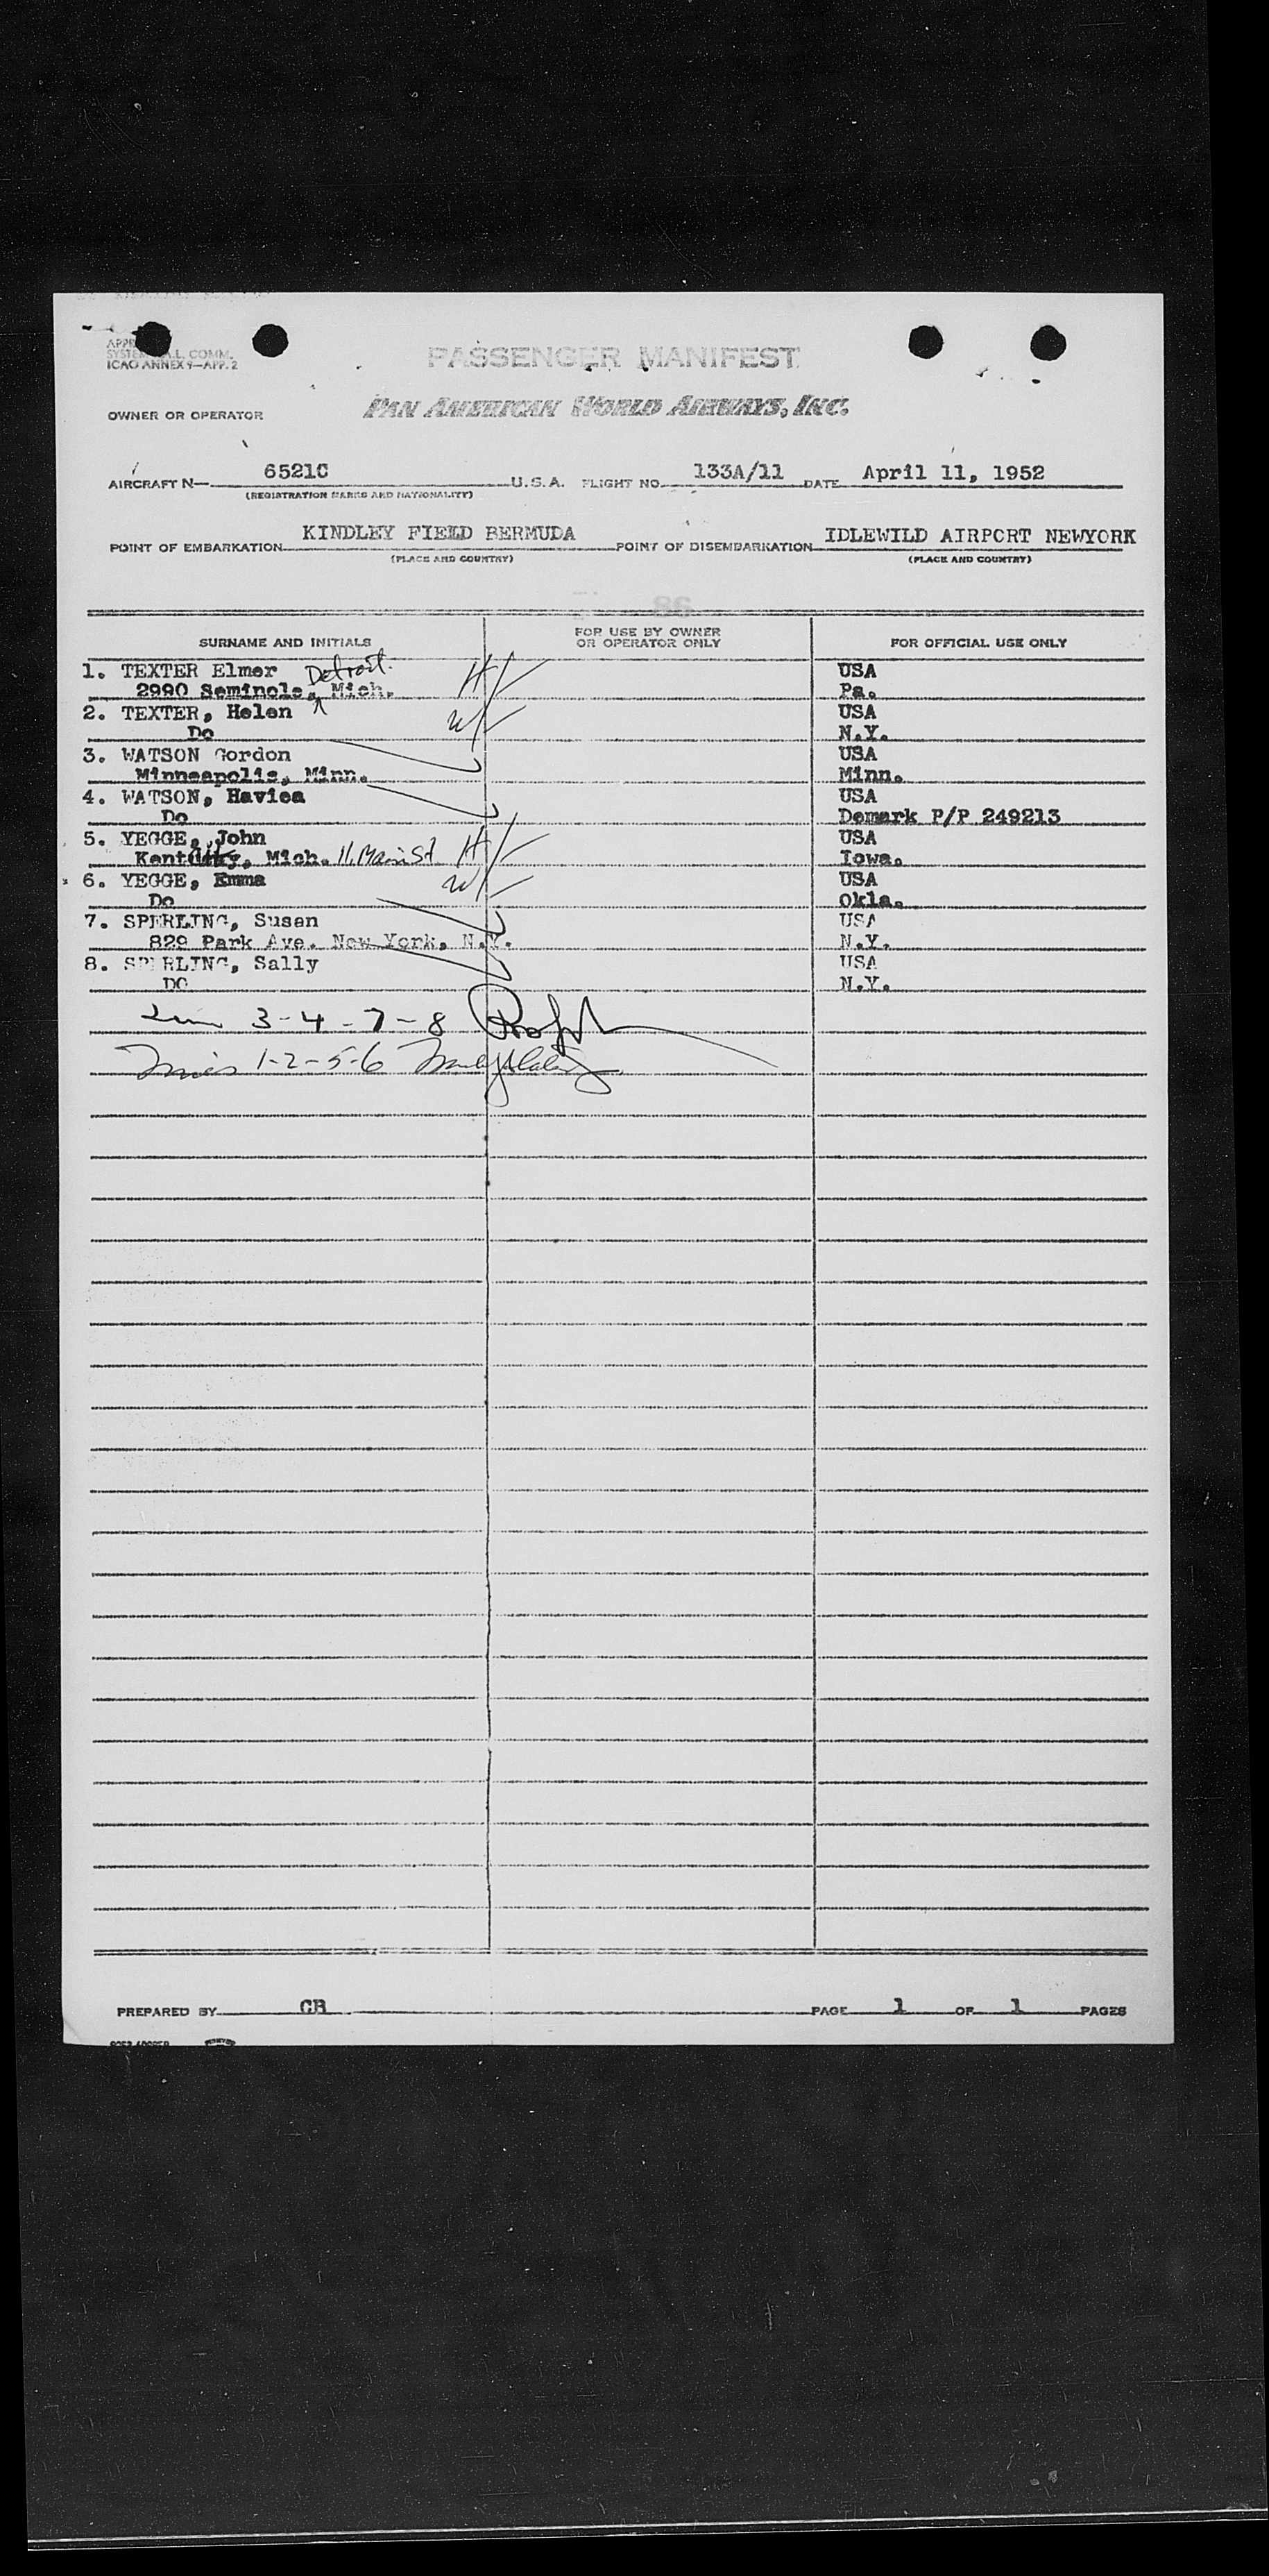 SYSTEM A.L. COMM.
ICAO ANNEX 9—APP. 2
PASSENGER MANIFEST
OWNER OR OPERATOR PAN AMERICAN WORLD AIRWAYS, INC.
AIRCRAFT N— 6521C U.S.A. FLIGHT NO. 133A/11 DATE April 11, 1952
(REGISTRATION MARKS AND NATIONALITY)
POINT OF EMBARKATION KINDLEY FIELD BERMUDA POINT OF DISEMBARKATION IDLEWILD AIRPORT NEWYORK
(PLACE AND COUNTRY) (PLACE AND COUNTRY)
86
SURNAME AND INITIALS FOR USE BY OWNER OR OPERATOR ONLY FOR OFFICIAL USE ONLY
1. TEXTER Elmer Detroit. H/ USA
2990 Seminole, Mich. Pa.
2. TEXTER, Helen W/ USA
Do N.Y.
3. WATSON Gordon USA
Minneapolis, Minn. Minn.
4. WATSON, Haviea USA
Do Demark P/P 249213
5. YEGGE, John H/ USA
Kentucky, Mich. 11. Main St Iowa.
6. YEGGE, Emma W/ USA
Do Okla.
7. SPERLING, Susan USA
829 Park Ave. New York, N.Y. N.Y.
8. SPERLING, Sally USA
DO N.Y.
3-4-7-8
1-2-5-6
PREPARED BY CB PAGE 1 OF 1 PAGES